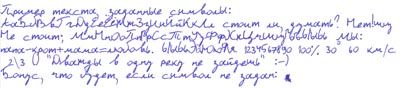 Пример текста, заданные символы:
АаБбВвГгДдЕеЁёЖжЗзИиЙйКкЛл стоит ли думать? Нет!
Не стоит; МмНнОоПпРрСсТтУуФфХхЦцЧчШшЩщЪъЫыЬь мы:
папа-крот+мама=любовь. ЫыЬьЭэЮюЯя 1234567890 100% 30° 60 км/с
2\3 0 "Дважды в одну реку не зайдёшь" :-)
Бонус, что будет, если символ не задан: